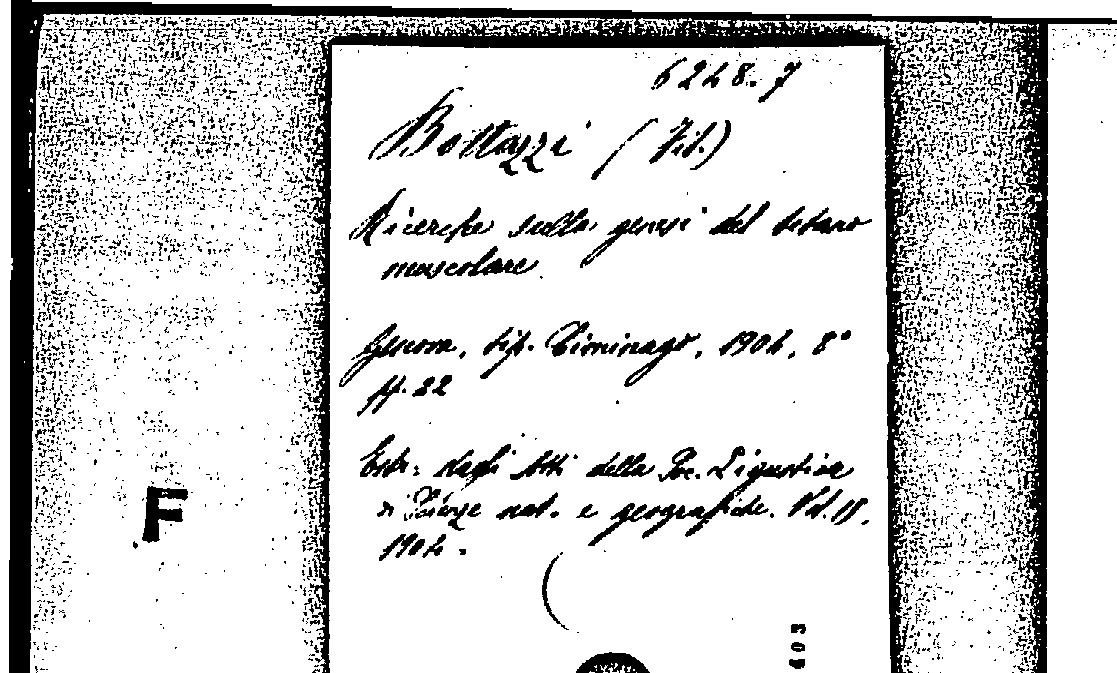 6248.7
Bottazzi (Fil.)
Ricerche sulla genesi del tetano
muscolare.
Genova, tip. Ciminago, 1904, 8°
pp. 22
Estr. dagli Atti della Soc. Ligustica
di Scienze nat. e geografiche. Vol. 15,
1904.
F
403